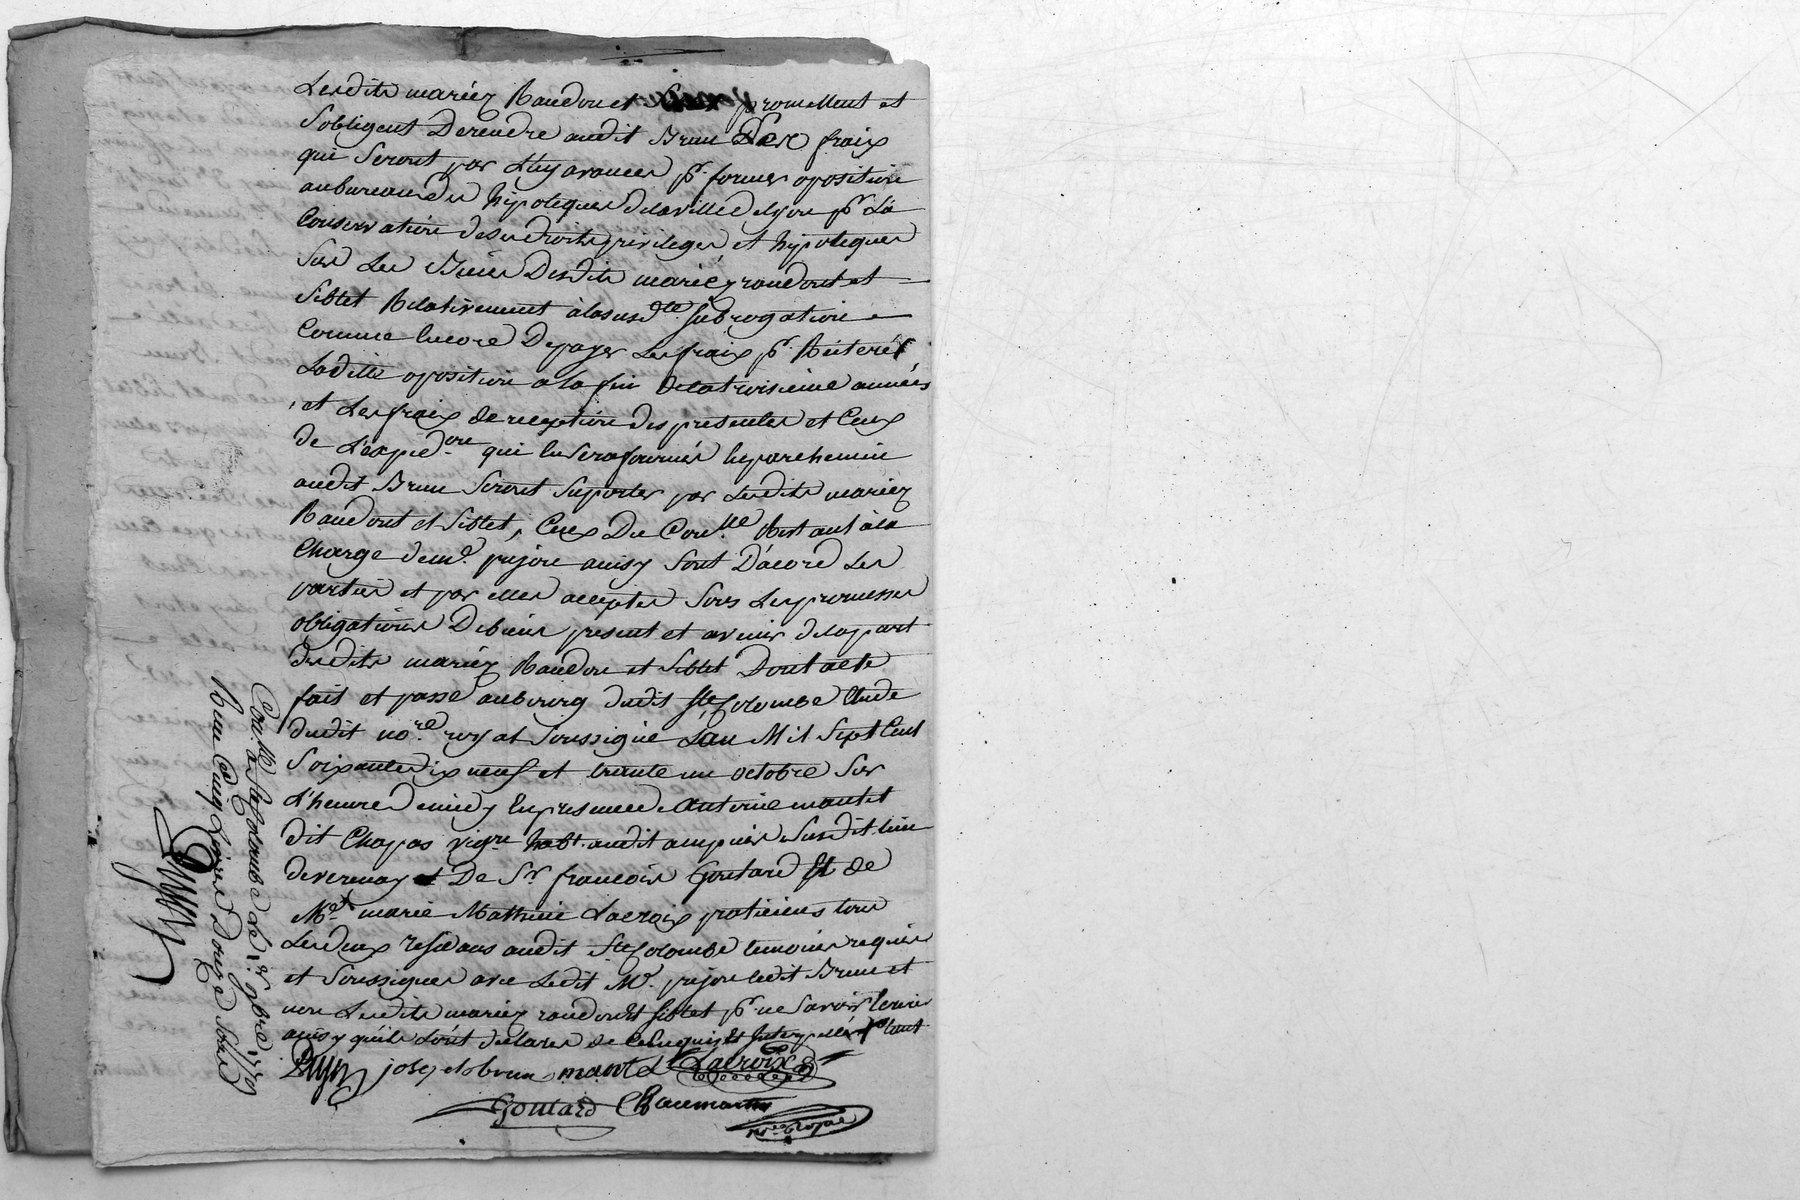 Lesdits mariéz Raudon et promettent et
Sobligent De rendre audit Brun Les fraix
qui Seront par Luy avancés pr. former oposition
au bureau des hipoteques de la ville de lyon pr. La
Conservation de ses droits privileges et hipoteques
Sur Les Biens Desdits mariéz raudont et
Siblet Relativement à la susdte. Subrogation
Comme encore De payer Les fraix pr. Réiterér
Laditte oposition a la fin de la troisieme année
et Les fraix de reception des presentes et Ceux
de L'expedon. qui en Sera fournie en parchemin
audit Brun Seront Suportés par Lesdits mariéz
Raudont et Siblet, Ceux Du Conlle. Restant à la
Charge de md. pujon ainsy Sont D'acord Les
parties et par elles acceptés Sous Les promesses
obligations De biens présent et avenir de la part
desdits mariéz Raudon et Siblet Dont acte
fait et passé au bourg dudit Ste Colombe Etude
dudit nore. royal Soussigné L'an Mil Sept Cent
Soixante dix neuf et trente un octobre Sur
L'heure de midy En presence d'Antoine mantet
dit Chapas vigrn. habt. audit ampuis Susdit lieu
de verenay et De Sr. francois Goutard Et de
Me. marie Mathieu Lacroix praticiens tous
Les deux residans audit Ste Colombe temoins requis
et Soussignés avec Ledit Mr. pujon Ledit Brun et
non Lesdits mariéz raudon Et Siblet pr. ne Savoir Ecrire
ainsy qu'ils L'ont declarés de ce Enquis Et Interpellés
joseph brun mantet Lacroix
Goutard Chaumartin
nore. Royal
Conllé. a Ste Colombe le 1er. 9bre 1779
Reçu Cinq Livres Douze Sols